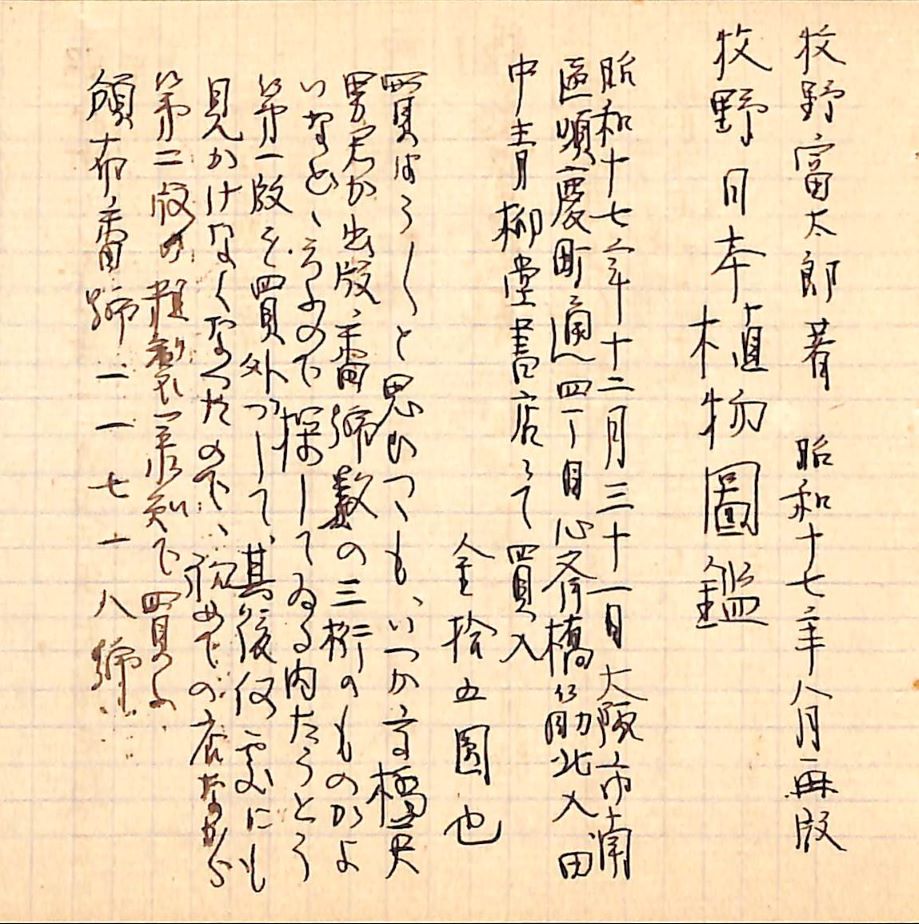 牧野富太郎著 昭和十七年八月再版
牧野日本植物圖鑑
昭和十七年十二月三十一日大阪市南
區順慶町通四丁目心斎橋筋北入田
中青柳堂書店ニて買入
金拾五圓也
買はう〱と思ひつゝも、いつか高橋
男君が出版番号数の三桁のものがよ
いなどゝ云ふので探してゐる内たうとう
第一版を買外づして、其後何處にも
見かけなくなつたので、初めての店ながら
第二版の粗製承知で買ふ
頒布番號一一七一八號